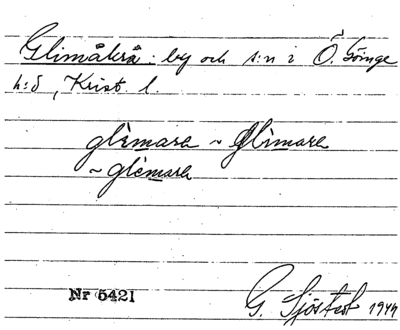 Glimåkra: by och s:n i Ö. Göinge
h:d, Krist l.
glìmara ~ glìmara
~ glèmara
Nr 5421
G. Sjöstedt 1944